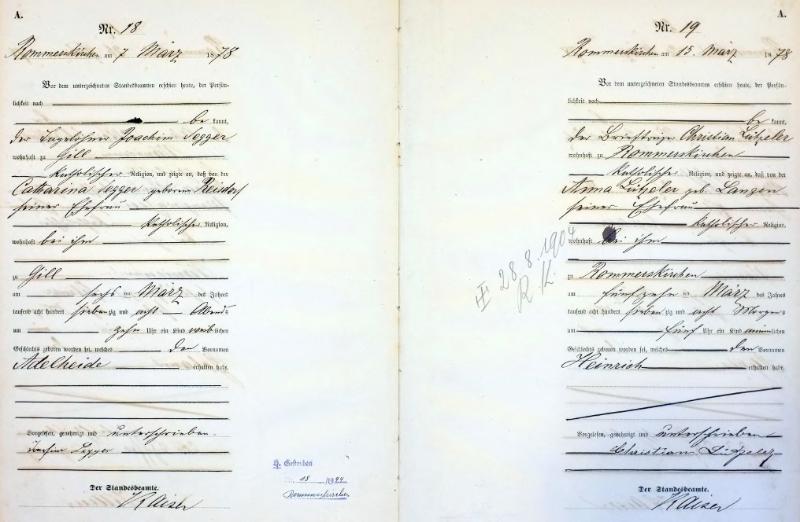 A.
Nr. 18
Rommerskirchen am 7 März 1878
Vor dem unterzeichneten Standesbeamten erschien heute, der Persön-
lichkeit nach
be kannt,
der Tagelöhner Joachim Segger
wohnhaft zu Gill
katholischer Religion, und zeigte an, daß von der
Catharina Segger geborene
seiner Ehefrau
katholischer Religion,
wohnhaft bei ihm
zu Gill
am sechs ten März des Jahres
tausend acht hundert sieben zig und acht Abends
um zehn Uhr ein Kind weiblichen
Geschlechts geboren worden sei, welches den Vornamen
Adelheide erhalten habe.
Vorgelesen, genehmigt und unterschrieben
Joachim Segger
Der Standesbeamte.
Kaiser
28.8.1904
R. K.
Gestorben
Rommerskirchen
A.
Nr. 19
Rommerskirchen am 15. März 1878
Vor dem unterzeichneten Standesbeamten erschien heute, der Persön-
lichkeit nach
be kannt,
der Briefträger Christian Lützeler
wohnhaft zu Rommerskirchen
katholischer Religion, und zeigte an, daß von der
Anna Lützeler geb. Langen
seiner Ehefrau
katholischer Religion,
wohnhaft bei ihm
zu Rommerskirchen
am fünfzehn ten März des Jahres
tausend acht hundert sieben zig und acht Morgens
um fünf Uhr ein Kind männlichen
Geschlechts geboren worden sei, welches den Vornamen
Heinrich erhalten habe.
Vorgelesen, genehmigt und unterschrieben
Christian Lützeler
Der Standesbeamte.
Kaiser